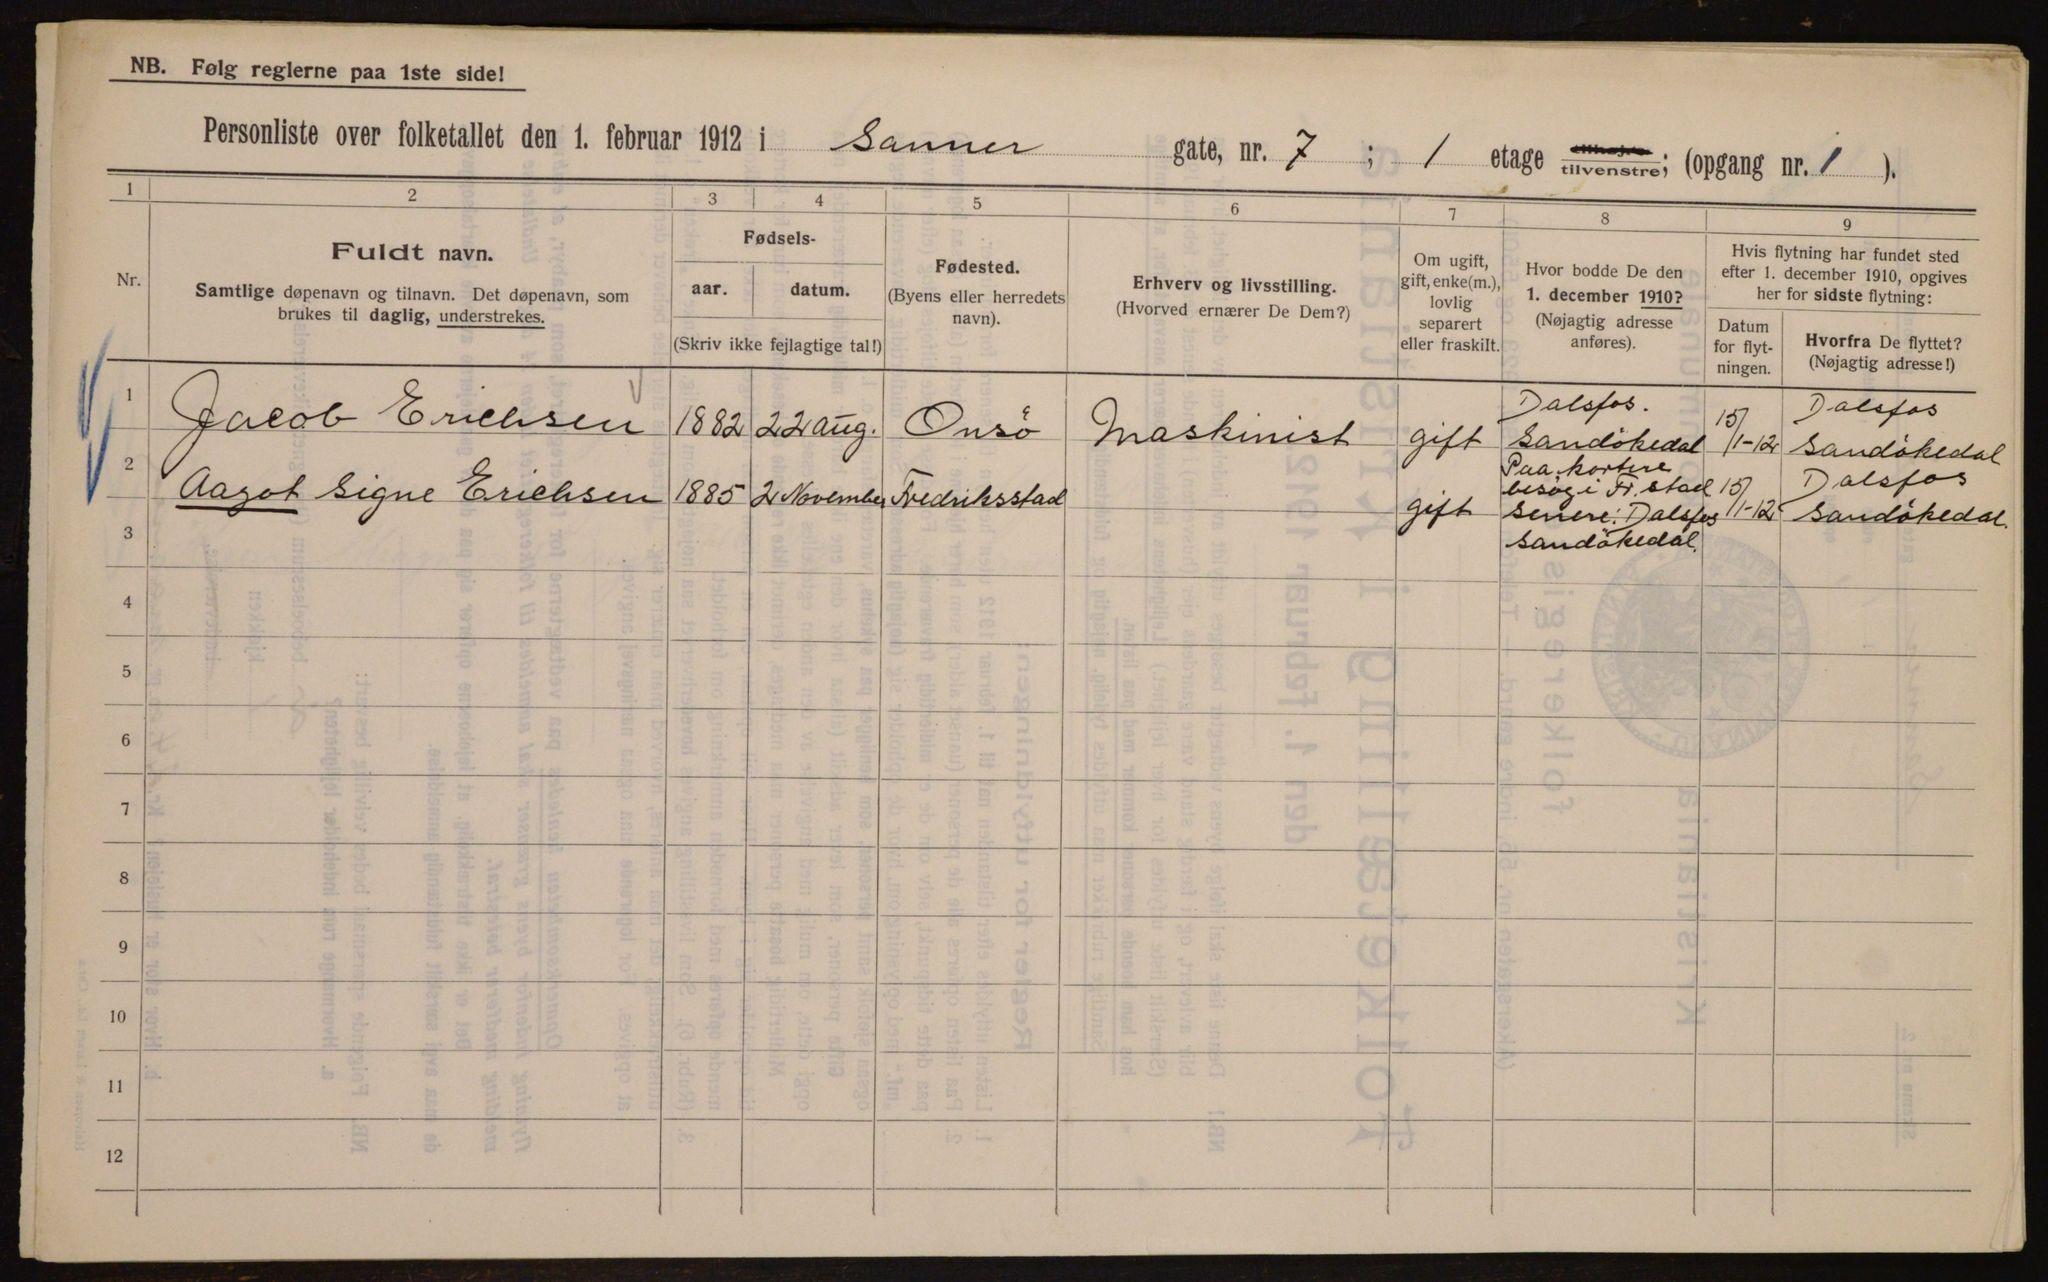 NB. Følg reglerne paa 1ste side!
Personliste over folketallet den 1. februar 1912 i Sanner gate, nr. 7 ; 1 etage tilhøjre tilvenstre; (opgang nr. 1 ).
1 2 3 4 5 6 7 8 9
Nr.
Fuldt navn.
Samtlige døpenavn og tilnavn. Det døpenavn, som
brukes til daglig, understrekes.
Fødsels-
aar. datum.
(Skriv ikke fejlagtige tal!)
Fødested.
(Byens eller herredets
navn).
Erhverv og livsstilling.
(Hvorved ernærer De Dem?)
Om ugift,
gift, enke(m.),
lovlig
separert
eller fraskilt.
Hvor bodde De den
1. december 1910?
(Nøjagtig adresse
anføres).
Hvis flytning har fundet sted
efter 1. december 1910, opgives
her for sidste flytning:
Datum
for flyt-
ningen.
Hvorfra De flyttet?
(Nøjagtig adresse!)
1 Jacob Erichsen 1882 22 aug. Onsö Maskinist gift
Dalsfos.
Sandökedal
15/1-12
Dalsfos
Sandökedal
2 Aagot Signe Erichsen 1885 2 November Fredriksstad gift
Paa kortere
besög i Fr.stad
senere: Dalsfos
Sandökedal.
15/1-12
Dalsfos
Sandökedal.
3
4
5
6
7
8
9
10
11
12